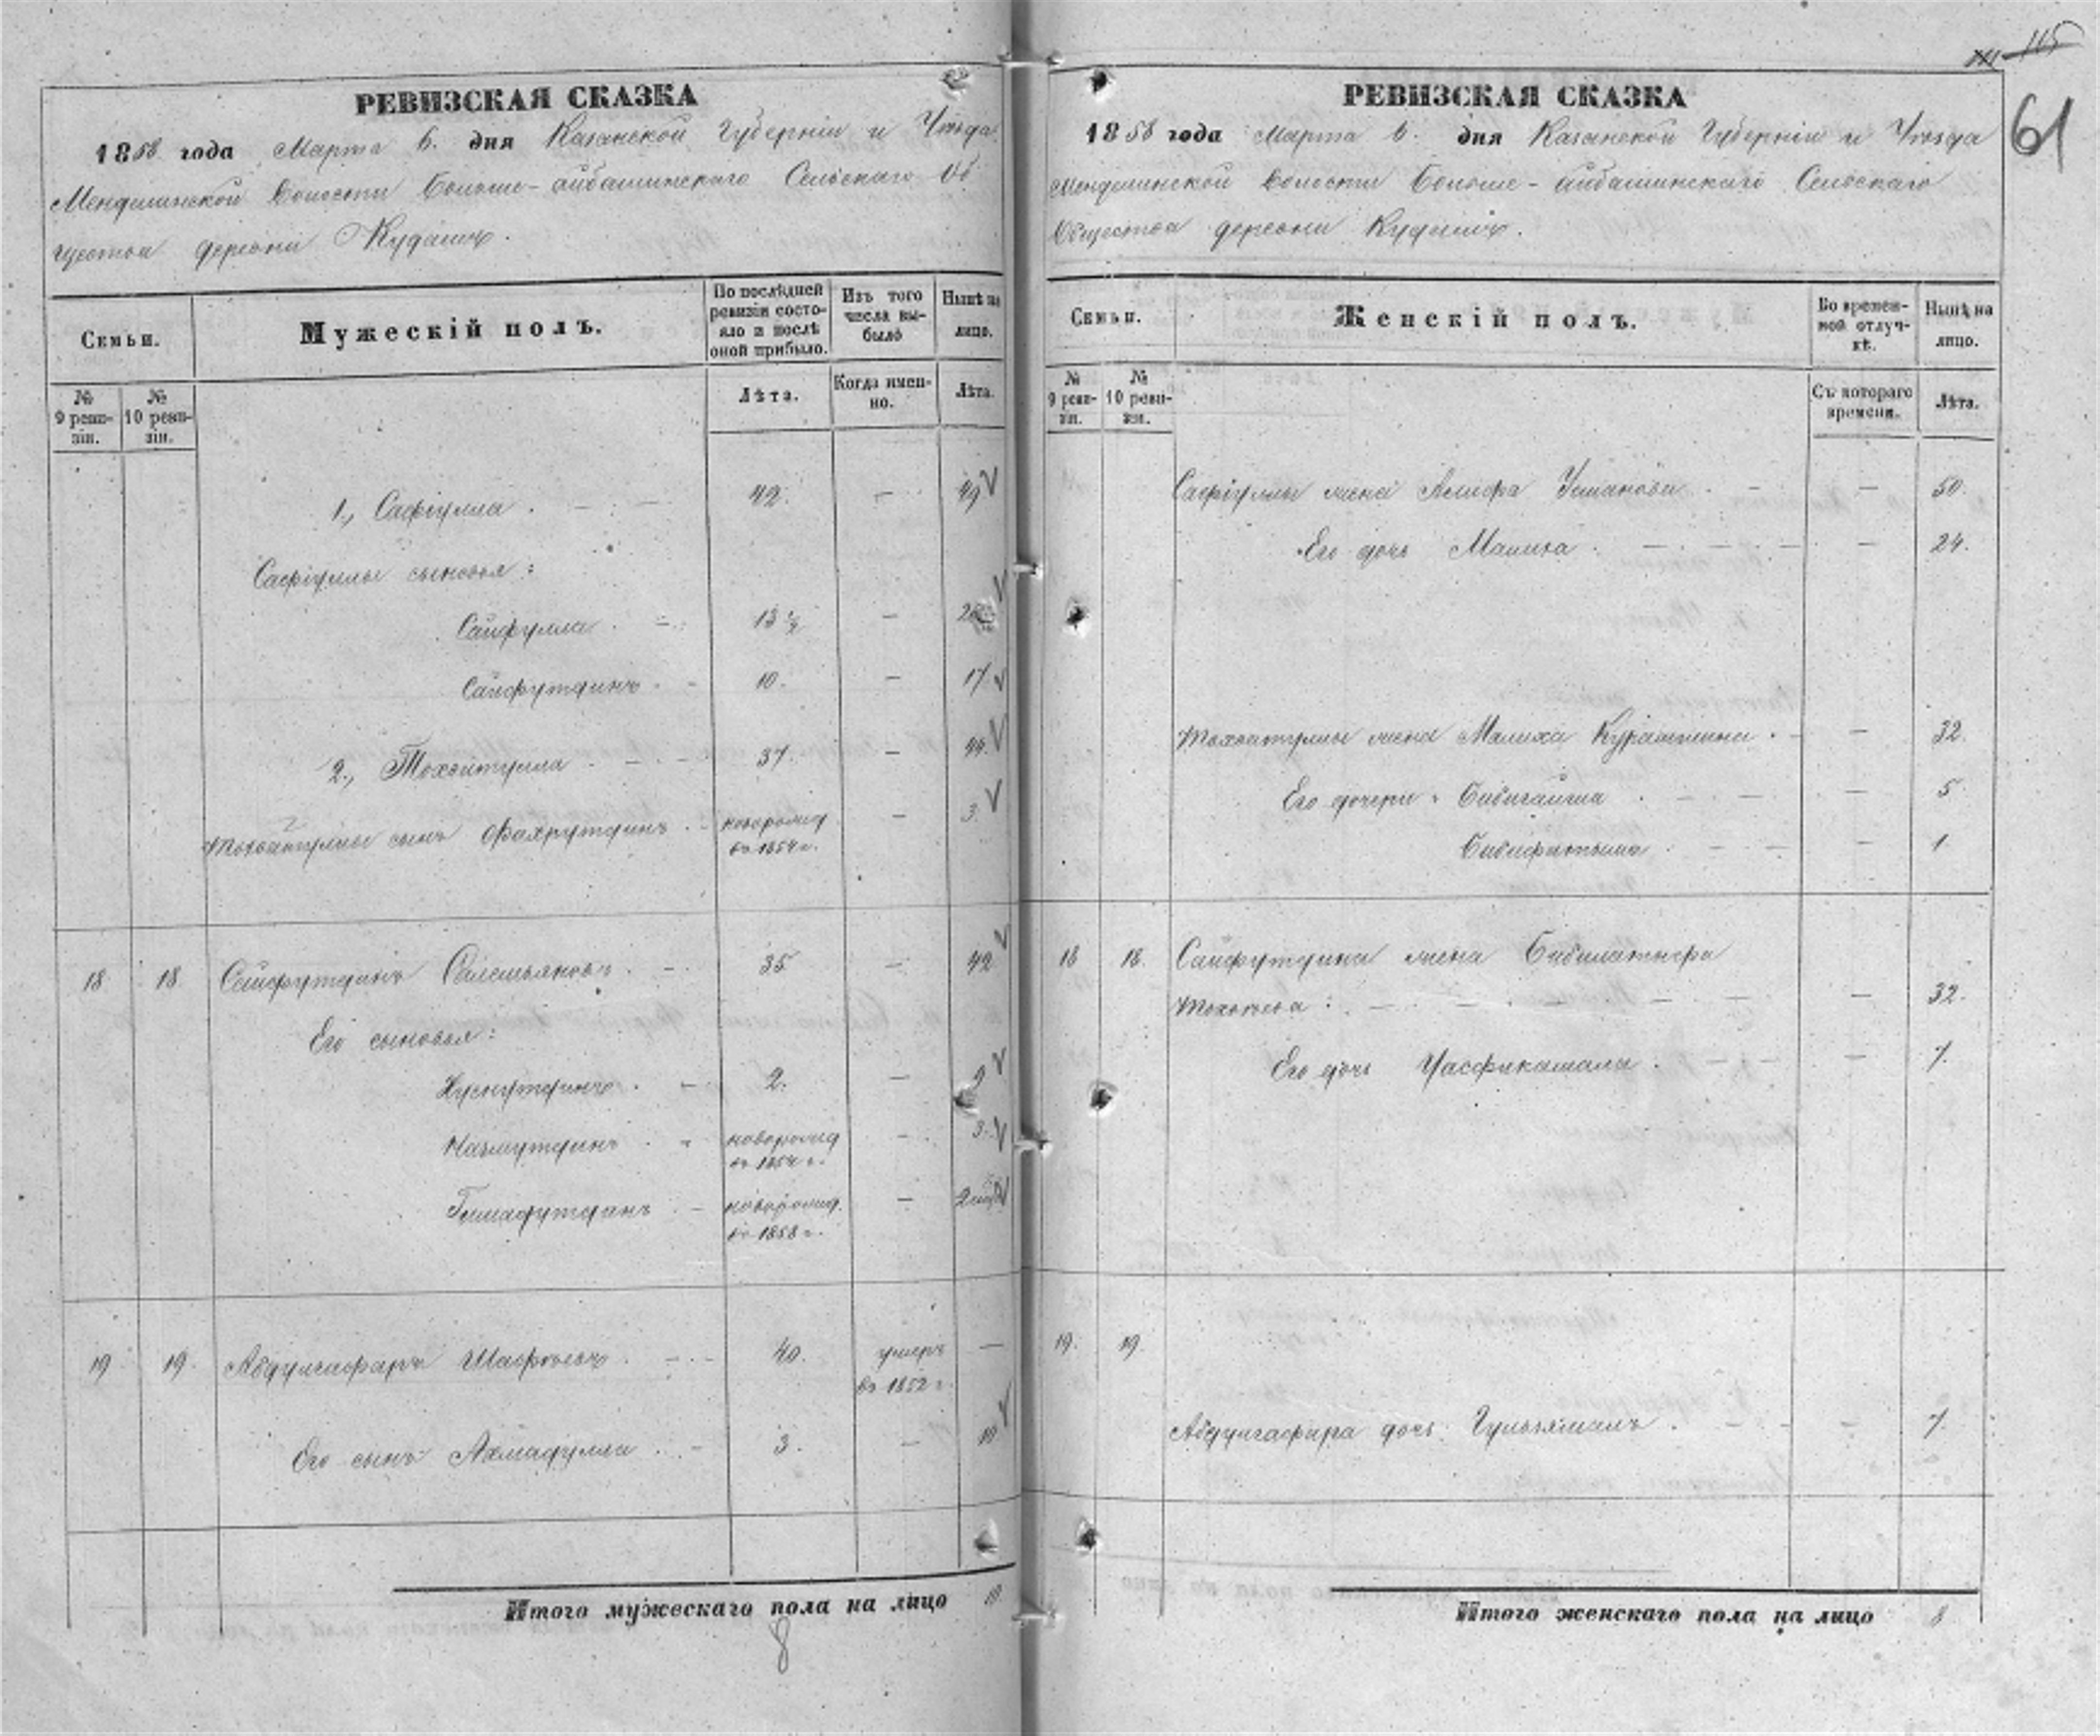 115
61
РЕВИЗСКАЯ СКАЗКА
1858 года Марта 6. дня Казанской Губерніи и Уѣзда
Менделинской Волости Больше-айбашинскаго Сельскаго Об
щества деревни Кудашъ.
Семьи.
Мужескій полъ.
По послѣдней ревизіи состояло и послѣ оной прибыло.
Изъ того числа выбыло
Нынѣ на лицо.
№ 9 ревизіи.
№ 10 ревизіи.
Лѣта.
Когда именно.
Лѣта.
1., Сафіулла . — 42. — 49
Сафіуллы сыновья:
Сайфулла . — 13 ½ —
Сайфутдинъ . — 10. — 17
2., Тохватулла . — 37. — 44.
Тохватуллы сынъ Фахрутдинъ . — новорожд. въ 1854 г. — 3.
18 18 Сайфутдинъ Салемьяновъ . — 35 — 42
Его сыновья:
Хуснутдинъ . — 2. — 9
Назмутдинъ . новорожд въ 1854 г. — 3.
новорожд. въ 1858 г. —
19 19. Абдулгафаръ . — 40. умеръ въ 1852 г. —
Его сынъ Ахмадулла . — 3. — 10
Итого мужескаго пола на лицо 10
8
РЕВИЗСКАЯ СКАЗКА
1858 года Марта 6. дня Казанской Губерніи и Уѣзда
Менделинской Волости Больше-айбашинскаго Сельскаго
Общества деревни Кудашъ.
Семьи.
Женскій полъ.
Во временной отлучкѣ.
Нынѣ на лицо.
№ 9 ревизіи.
№ 10 ревизіи.
Съ котораго времени.
Лѣта.
Сафіуллы жена Усманова . — — 50.
Его дочь Малиха . — — 24.
Тохватуллы жена Малиха . — — 32.
Его дочери: Бибигайша . — — 5
— — 1
18 18. Сайфутдина жена
— — 32.
Его дочь . — — 7.
19. 19.
Абдулгафара дочь Гульзямалъ . — — 7.
Итого женскаго пола на лицо 8